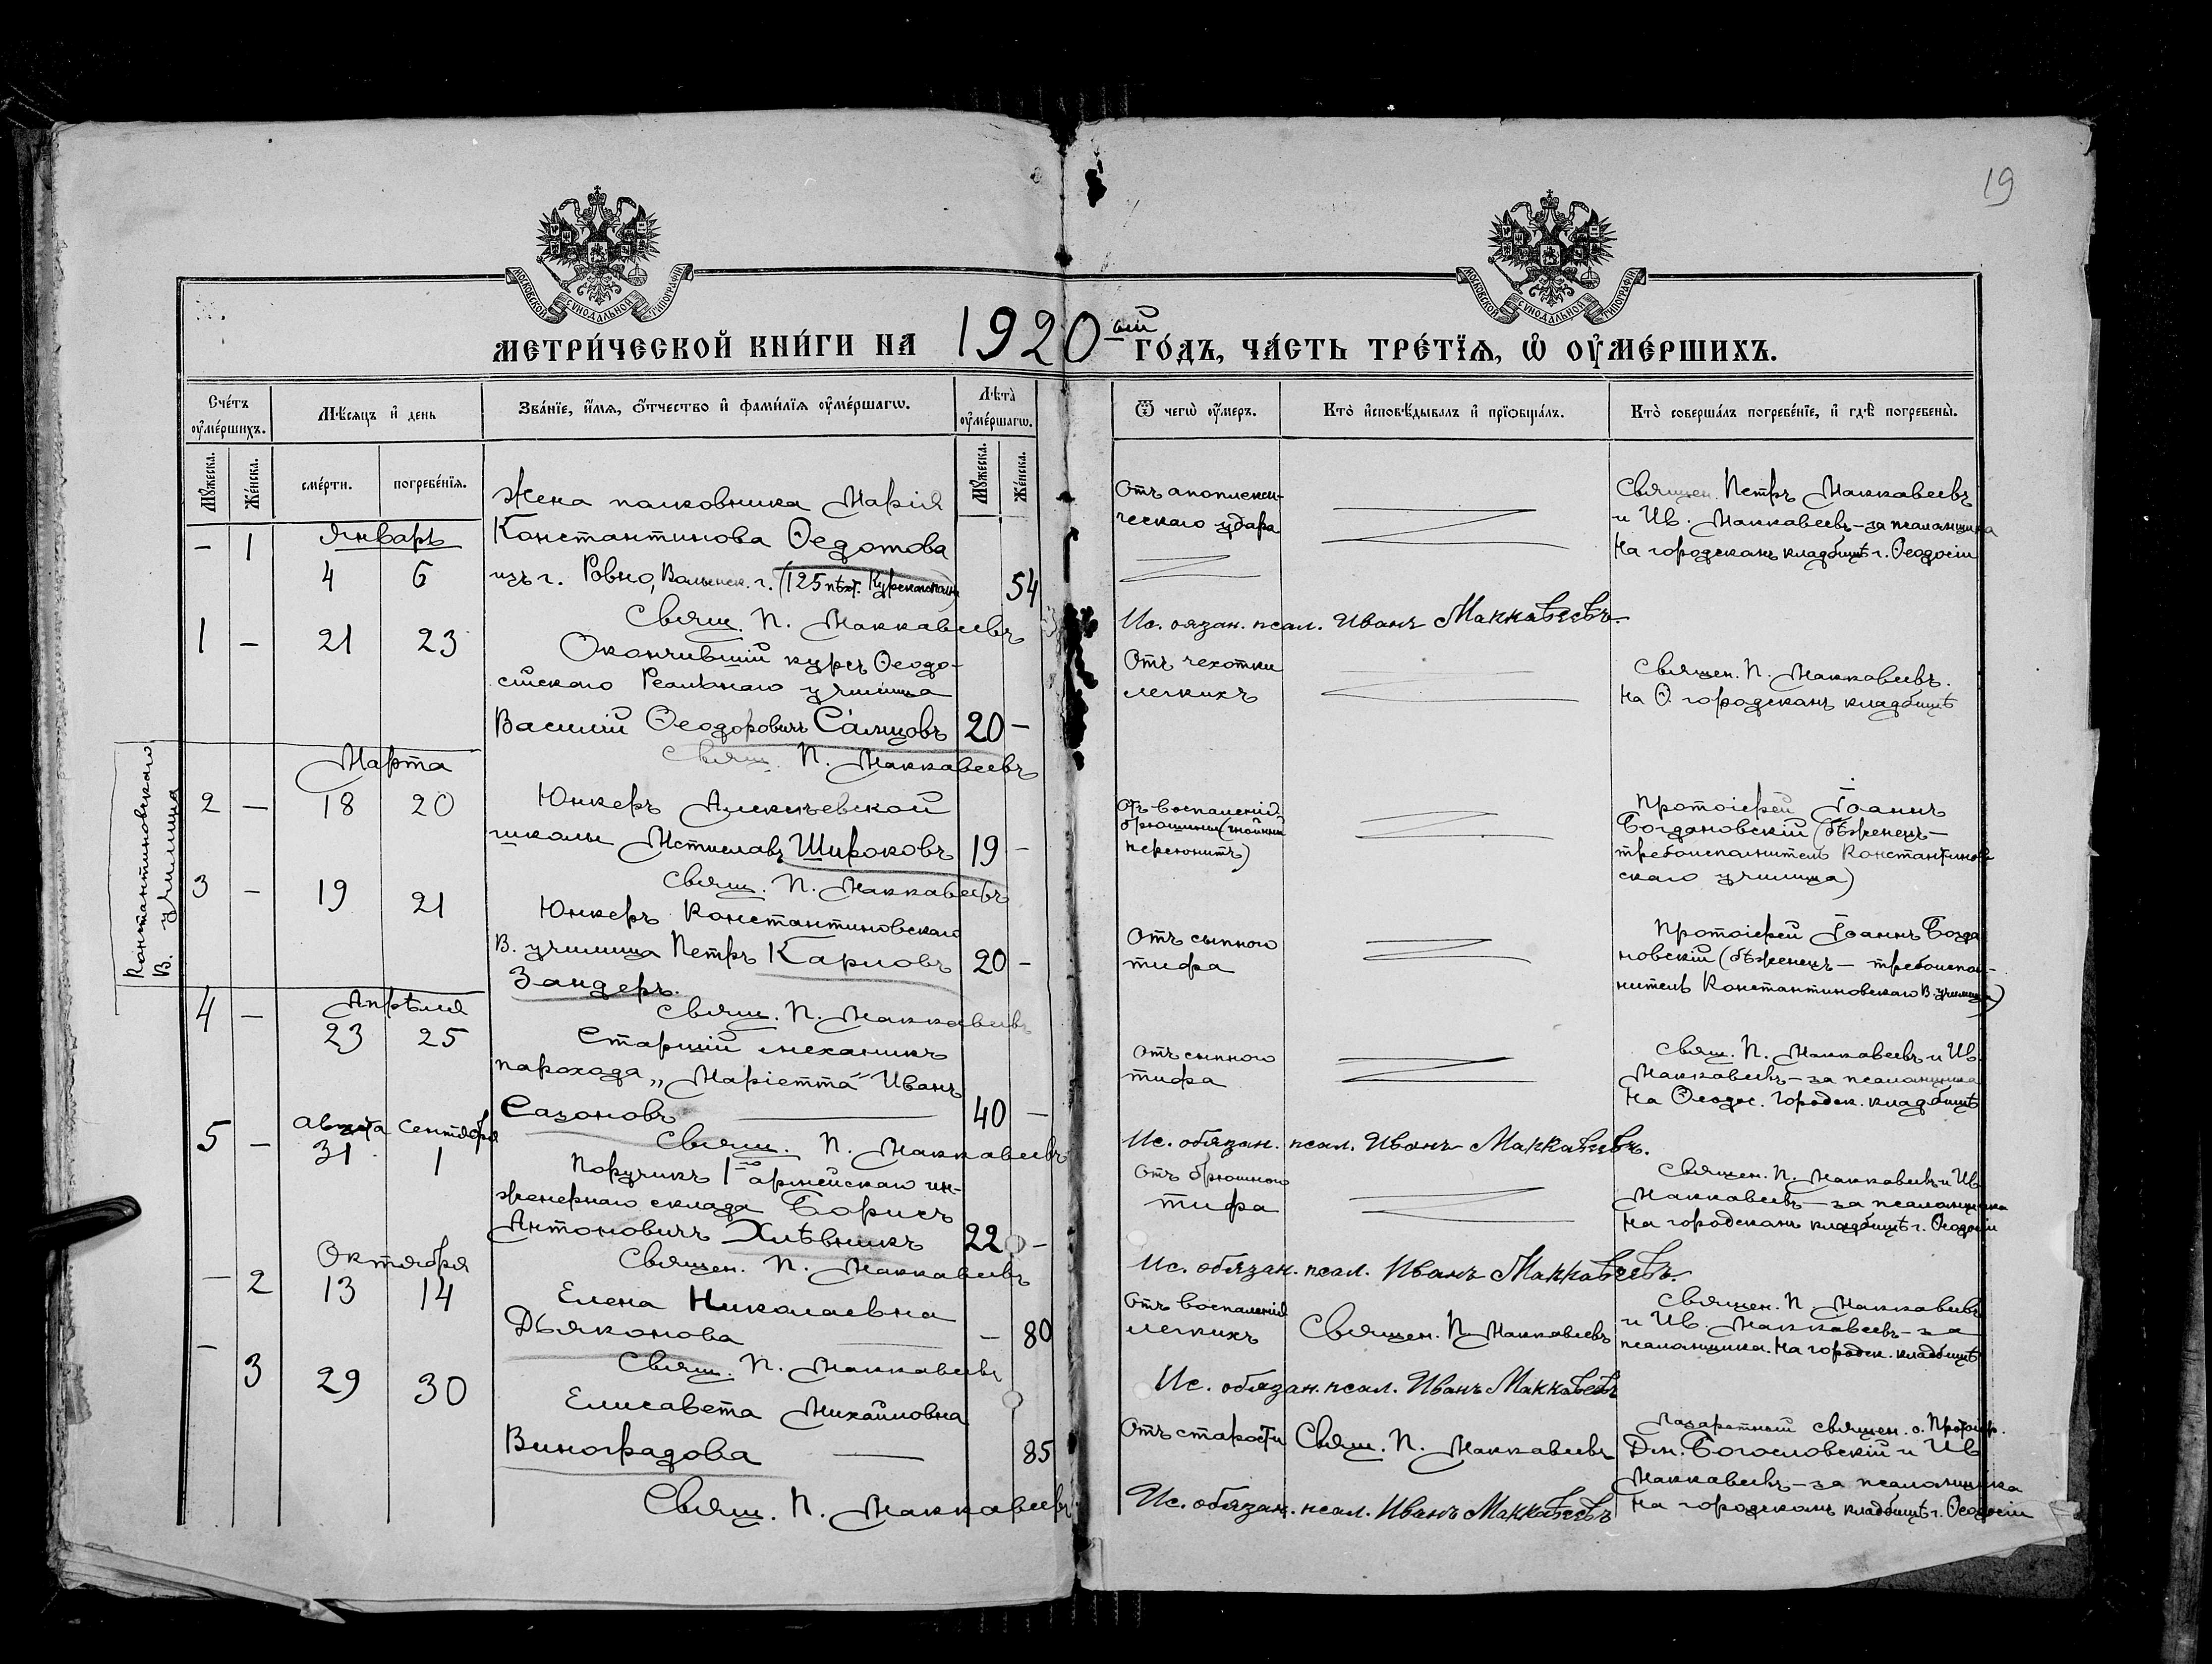 19
МОСКОВСКОЙ СѴНОДАЛЬНОЙ ТИПОГРАФІИ
МОСКОВСКОЙ СѴНОДАЛЬНОЙ ТИПОГРАФІИ
МЕТРИ́ЧЕСКОЙ КНИ́ГИ НА 1920 ый ГО́ДЪ, ЧА́СТЬ ТРЕ́ТІѦ, Ѡ҆ ОУ҆МЕ́РШИХЪ.
Сче́тъ оу҆ме́ршихъ.
Мѣ́сяцъ и҆ день
Зва́нїе, и҆́мѧ, ѻ҆́тчество и҆ фами́лїѧ оу҆ме́ршагѡ.
Лѣта̀ оу҆ме́ршагѡ.
Ѿ чегѡ̀ оу҆́меръ.
Кто̀ и҆сповѣ́дывалъ и҆ прїѡбща́лъ.
Кто̀ соверша́лъ погребе́нїе, и҆ гдѣ̀ погребены̀.
Мꙋ́жеска.
Же́нска.
сме́рти.
погребе́нїѧ.
Мꙋ́жеска.
Же́нска.
Январь
— 1 4 6
Жена полковника Марія
Константинова Ѳедотова
изъ г. Ровно, Волынск. г. (125 пѣх. Курскаго полка) 54
Свящ. П. Маккавеевъ
Отъ апоплекси-
ческаго удара
Священ. Петръ Маккавеевъ
и Ив. Маккавеевъ — за псаломщика
На городскомъ кладбищѣ г. Ѳеодосіи
Ис. обязан. псал. Иванъ Маккавѣевъ.
1 — 21 23
Окончившій курсъ Ѳеодо-
сійскаго Реальнаго училища
Василій Ѳеодоровичъ Са́льцовъ 20 —
Свящ. П. Маккавеевъ
Отъ чахотки
легкихъ
Священ. П. Маккавеевъ.
На Ѳ. городскомъ кладбищѣ
Константиновскаго
В. училища
Марта
2 — 18 20
Юнкеръ Алексѣевской
школы Мстиславъ Широковъ 19 —
Свящ. П. Маккавеевъ
Отъ воспаленія
брюшины (гнойный
перетонитъ)
Протоіерей Іоаннъ
Богдановскій (бѣженецъ —
требоисполнитель Константинов-
скаго училища)
3 — 19 21
Юнкеръ Константиновскаго
В. училища Петръ Карловъ 20 —
Зандеръ.
Свящ. П. Маккавеевъ
Отъ сыпного
тифа
Протоіерей Іоаннъ Богда
новскій (бѣженецъ — требоиспол-
нитель Константиновскаго В. училища)
Апрѣля
4 — 23 25
Старшій механикъ
парохода „Маріетта“ Иванъ
Сазоновъ 40 —
Свящ. П. Маккавеевъ
Отъ сыпного
тифа
Свящ. П. Маккавеевъ и Ив.
Маккавеевъ — за псаломщика
На Ѳеодос. городск. кладбищѣ
Ис. обязан. псал. Иванъ Маккавѣевъ.
Августа Сентября
5 — 31 1
Поручикъ 1го армейскаго ин-
женернаго склада Борисъ
Антоновичъ Хлѣвникъ 22 —
Священ. П. Маккавеевъ
Отъ брюшного
тифа
Священ. П. Маккавеевъ и Ив.
Маккавеевъ — за псаломщика
На городскомъ кладбищѣ г. Ѳеодосіи
Ис. обязан. псал. Иванъ Маккавѣевъ.
Октября
— 2 13 14
Елена Николаевна
Дьяконова — 80
Свящ. П. Маккавеевъ
Отъ воспаленія
легкихъ
Священ. П. Маккавеевъ
Священ. П. Маккавеевъ
и Ив. Маккавеевъ — за
псаломщика. На городск. кладбищѣ
Ис. обязан. псал. Иванъ Маккавѣевъ
— 3 29 30
Елисавета Михайловна
Виноградова 85
Свящ. П. Маккавеевъ
Отъ старости
Свящ. П. Маккавеевъ
Лазаретный священ. о. Протоіер.
Дм. Богословскій и Ив.
Маккавеевъ — за псаломщика
На городскомъ кладбищѣ г. Ѳеодосіи
Ис. обязан. псал. Иванъ Маккавѣевъ